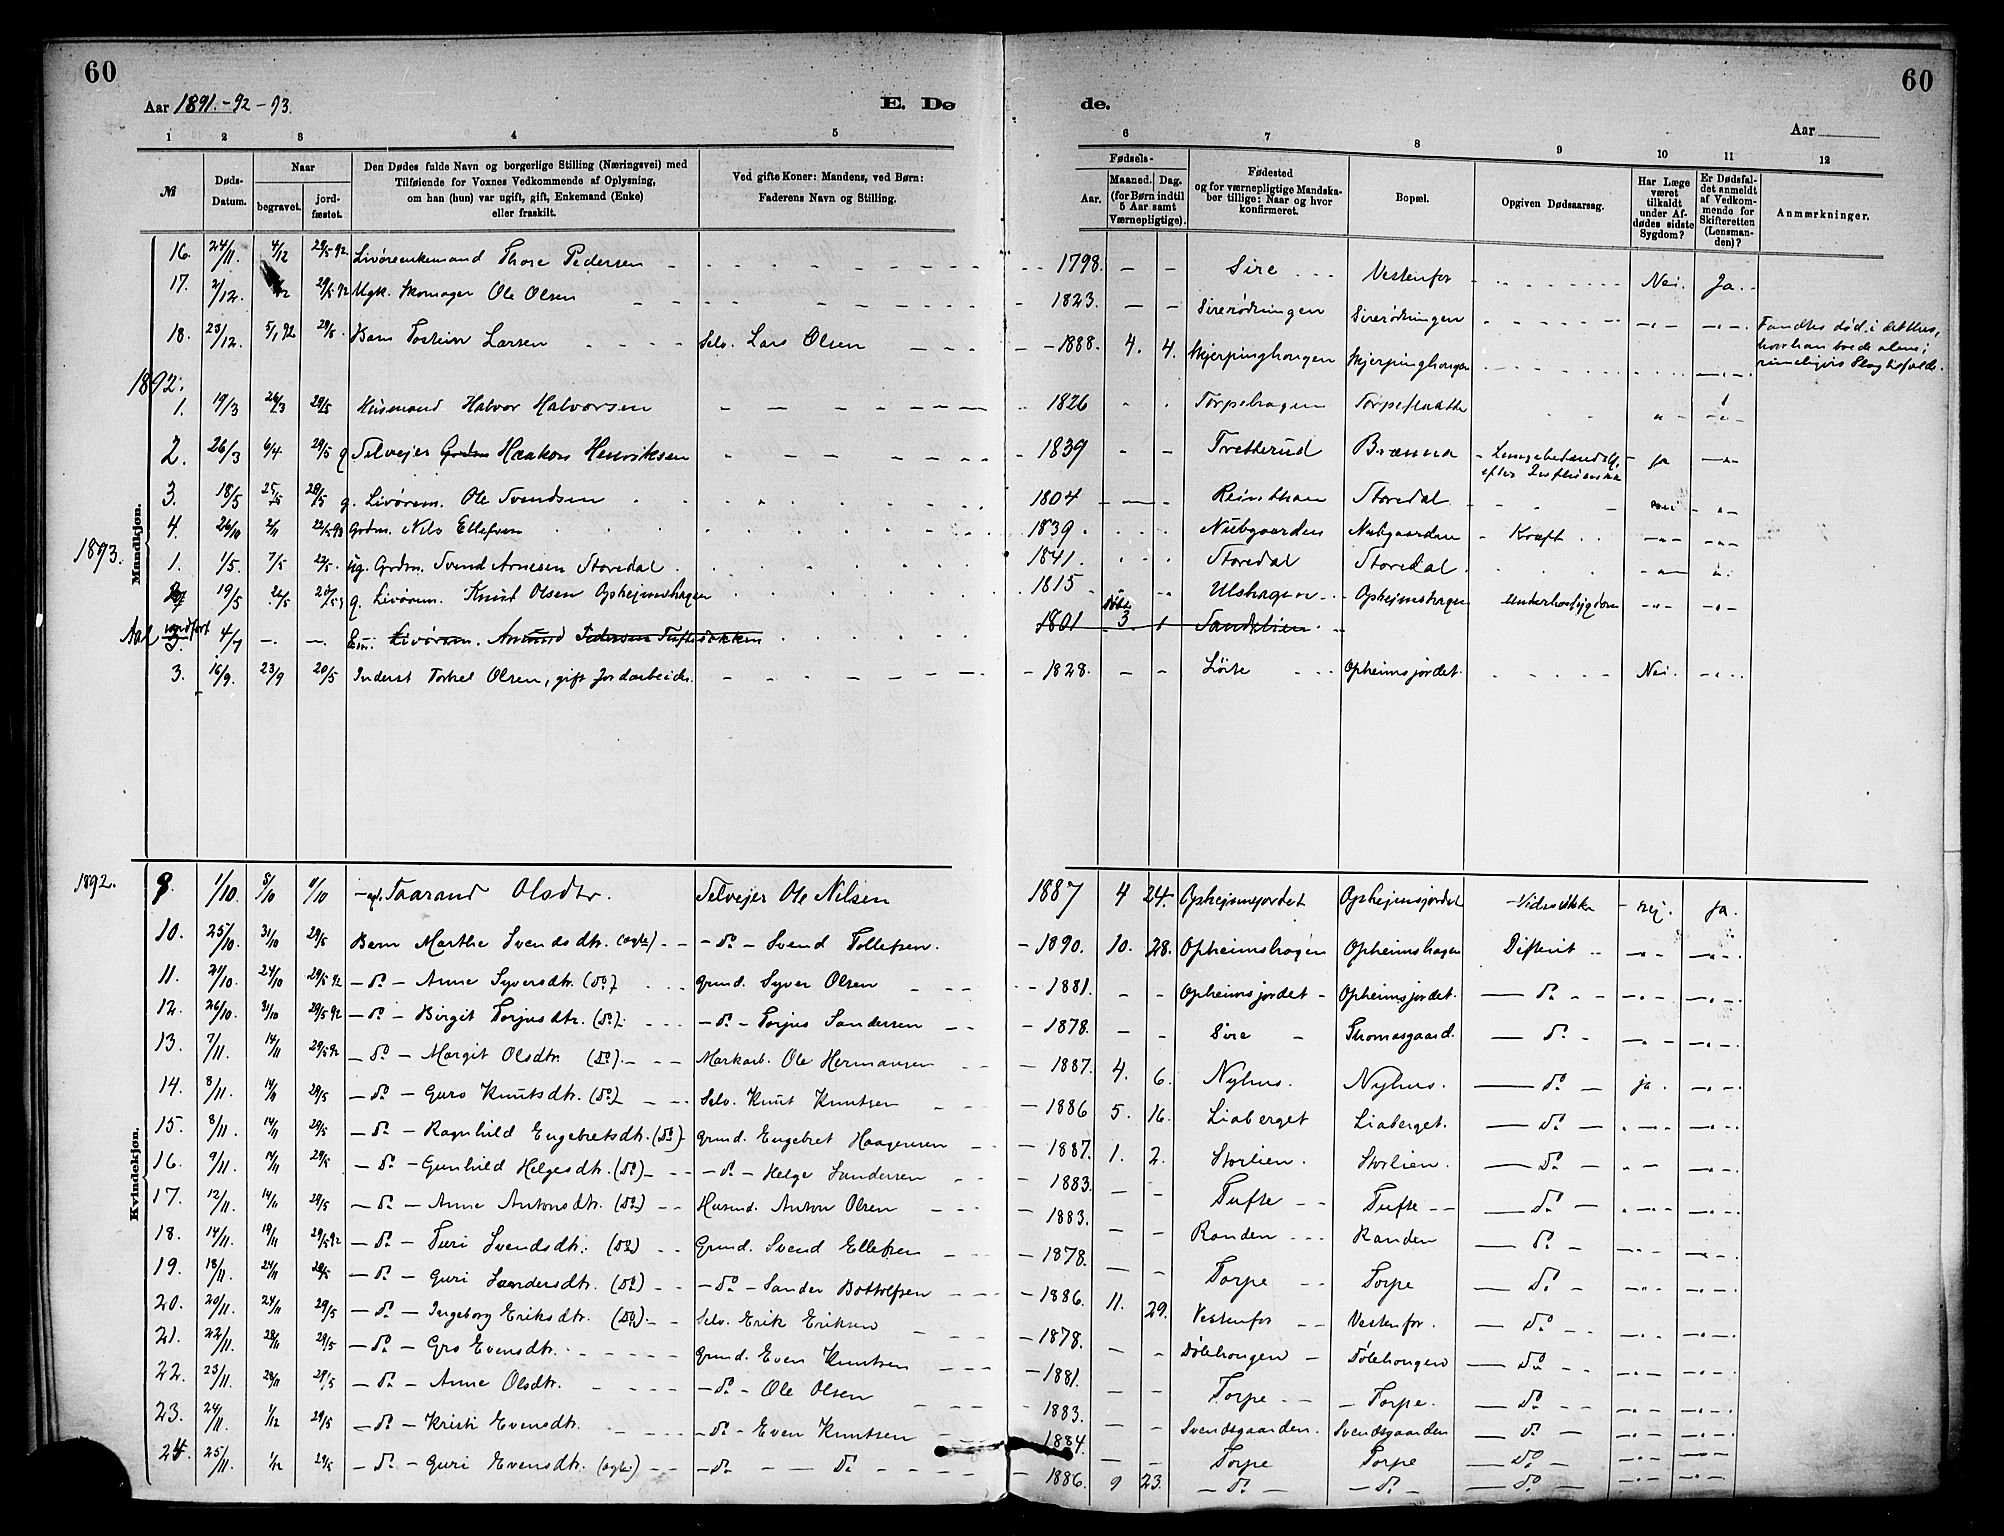 60
60
Aar 1891.-92-93.
E. Dø
de.
Aar
1 2 3 4 5 6 7 8 9 10 11 12
№
Døds-Datum.
Naar
begravet.
jord-fæstet.
Den Dødes fulde Navn og borgerlige Stilling (Næringsvei) med
Tilføiende for Voxnes Vedkommende af Oplysning,
om han (hun) var ugift, gift, Enkemand (Enke)
eller fraskilt.
Ved gifte Koner: Mandens, ved Børn:
Faderens Navn og Stilling.
Fødsels-
Aar.
Maaned. Dag.
(for Børn indtil
5 Aar samt
Værnepligtige).
Fødested
og for værnepligtige Mandska-
ber tillige: Naar og hvor
konfirmeret.
Bopæl.
Opgiven Dødsaarsag.
Har Læge
været
tilkaldt
under Af-
dødes sidste
Sygdom?
Er Dødsfal-
det anmeldt
af Vedkom-
mende for
Skifteretten
(Lensman-
den)?
Anmærkninger.
Mandkjøn.
16. 24/11. 4/12 29/5 92 Livøreenkemand Thore Pedersen 1798. Sire Vestenfor Nei. Ja.
17. 2/12. 29/5 92 Ugk. Skomager Ole Olsen 1823. Sirerødningen Sirerødningen
18. 23/12. 5/1 92 29/5. Barn Larsen Selv. Lars Olsen 1888. 4. 4. Skjerpinghougen Skjerpinghougen Fandtes død i det Hus, hvor han boede alene;
1892.
1. 19/3 26/3 29/5 Husmand Halvor Halvorsen 1826 Torpehagen
2. 26/3 6/4 29/5 g Selveier Grdm Haakon Henriksen 1839 Tretterud Brænna Lungebetændelse efter ja
3. 18/5 25/5 29/5 g. Livørem. Ole Svendsen 1804 Storedal
4. 26/10 2/11 22/5 93 Grdm. Nils Ellefsen 1839 Nubgaarden Nubgaarden Kræft
1893.
1. 1/5. 7/5 22/5. ug. Grdm. Svend Arnesen Storedal 1841. Storedal Storedal
2 19/5 22/5 g. Livørem. Knud Olsen Opheimshagen 1815 Ulshagen Opheimshagen
Aal 3. 4/7 Em. Livørem. Amund Pedersen 1801 3 1 Sandelien
3. 16/9. 23/9 20/5 Inderst Torkel Olsen, gift Jordarbeider 1828. Opheimsjordet. Nei.
Kvindekjøn.
1892.
9. 1/10. 8/10 Taarand Olsdtr. Selveier Ole Nilsen 1887 4 24. Opheimsjordet Opheimsjordet nei. ja.
10. 25/10. 31/10 29/5 Barn Marthe Svendsdtr. (ægte) - do - Svend Tollefsen. 1890. 10. 28. Opheimshagen Opheimshagen Difterit
11. 21/10. 24/10 29/5 92 - do - Anne Syversdtr. (do) Grund. Syver Olsen 1881. Opheimsjordet Opheimsjordet. do
12. 26/10. 31/10 29/5 92 - do - Birgit Torjusdtr. (do) - do - Torjus Sandersen 1878. Sire Thomasgaard. do
13. 7/11. 14/11 29/5 92 - do - Margit Olsdtr. (do) Markarb. Ole Hermansen 1887. 4. 6. Nyhus. Nyhus. do ja.
14. 8/11. 14/11 29/5 - do - Guro Knutsdtr. (do) Selv. Knut Knutsen 1886 5. 16. Liaberget Liaberget. do
15. 8/11. 14/11 29/5 - do - Ragnhild Engebretsdtr. (do) Grund. Engebret Haagensen 1887. 1. 2. Storlien. Storlien. do
16. 9/11. 14/11 29/5 - do - Gunhild Helgesdtr. (do) - do - Helge Sandersen 1883. Tufte Tufte do
17. 12/11. 14/11 29/5 - do - Anne Antonsdtr. (do) Husmd. Anton Olsen 1883. Randen Randen do
18. 14/11. 19/11 29/5 92 - do - Turi Svendsdtr. (do) Grund. Svend Ellefsen 1878. Torpe Torpe do
19. 18/11. 24/11 29/5 - do - Guri Sandersdtr. (do) - do - Sander Bottolfsen 1886. 11. 29. Vestenfor Vestenfor. do
20. 20/11. 24/11 29/5 - do - Ingeborg Eriksdtr. (do) Selv. Erik Eriksen 1878. Dölehougen Dölehougen do
21. 22/11. 28/11 29/5 - do - Gro Evensdtr. Grund. Even Knutsen 1881. Torpe Torpe. do
22. 23/11. 28/11 29/5 - do - Anne Olsdtr. - do - Ole Olsen 1883. Svendsgaarden. Svendsgaarden do
23. 24/11. 1/12 29/5 - do - Kristi Evensdtr. - do - Even Knutsen 1884. Torpe Torpe do
24. 25/11. 1/12 29/5 - do - Guri Evensdtr. (ægte) - do - do 1886. 9 23. - do - - do - do